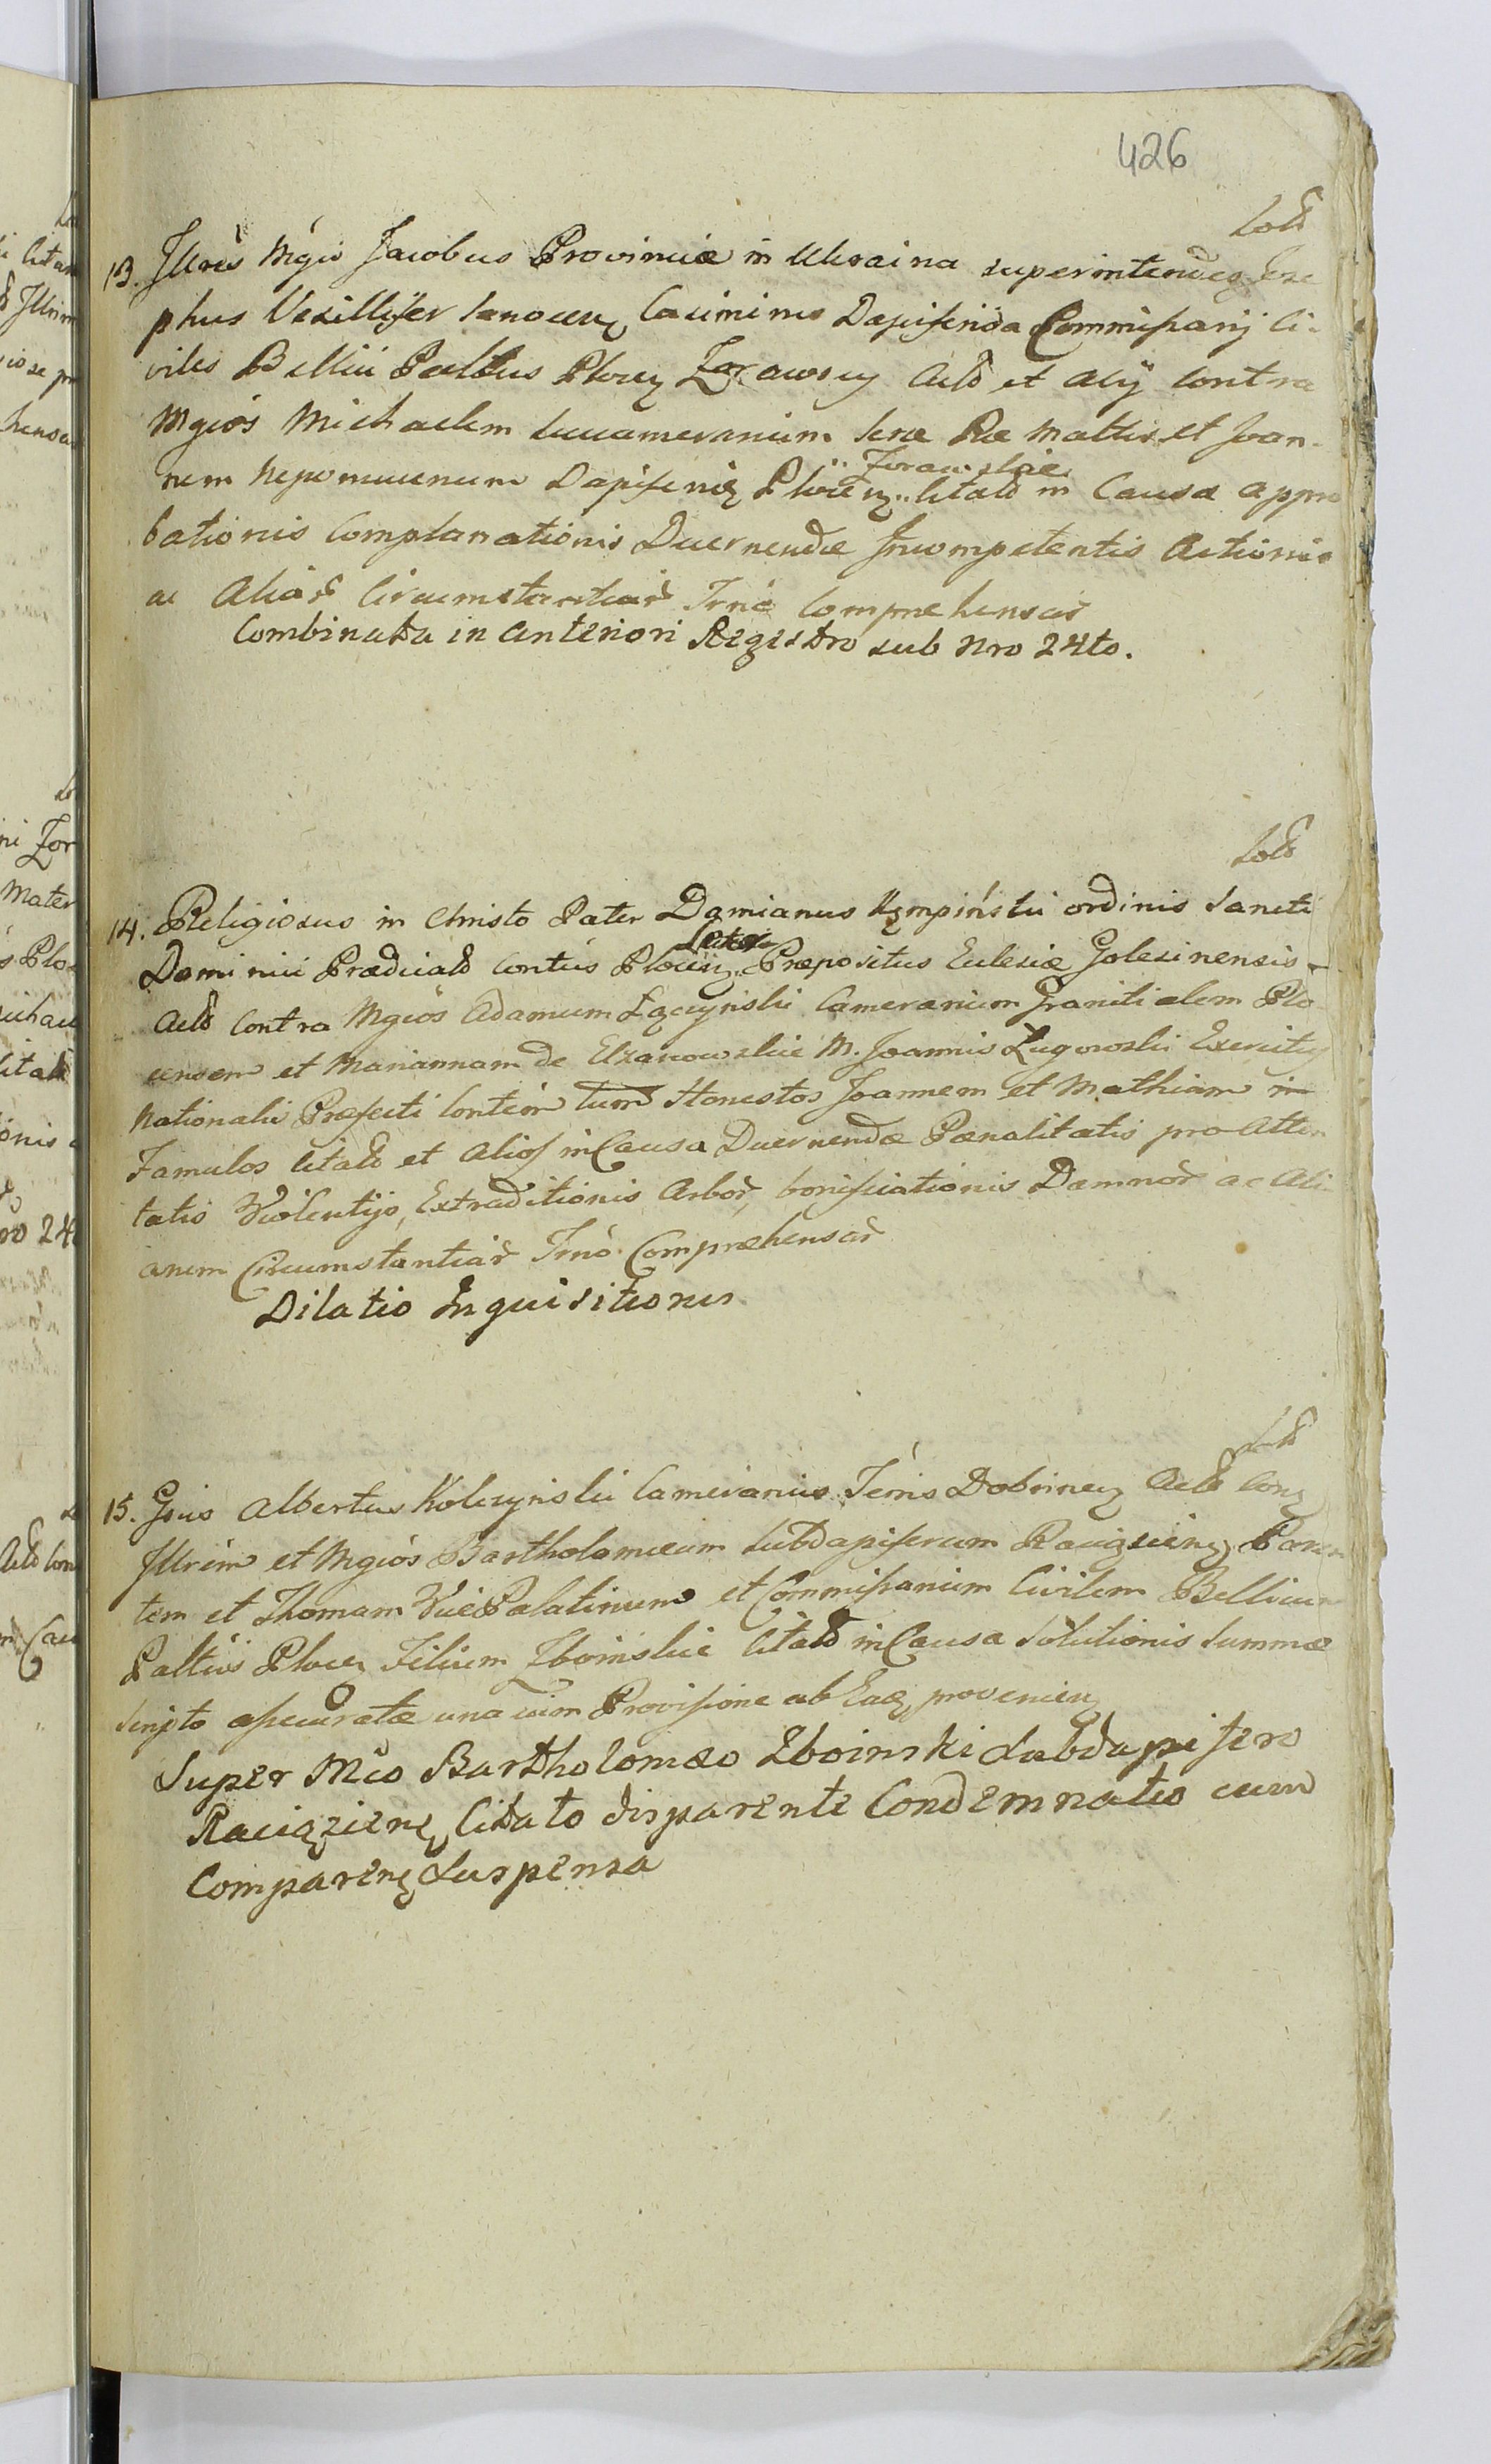 426
13. Illris Mgis Jacobus Provinciæ in Ukraina superintendeş Jze
phus Vexillifer Sanoceņ Casimirus Dapiferida Commissarij Ci-
viles Bellici Paltus Płoceņ Zorawscy Actō et alij contra
Mgiós Michaelem Succamerarium Seræ Ræ Mattis et Joan-
nem Nepomucenum Dapiferiď Płoceņ Zorawskie Citatō in Causa appro
bationis Complanationis Decernendæ Incompetentis Actionis
ac Aliar̃ Circumstantiar̃ Trnó Comprehensar̃
Combinata in anteriori Regestro sub Nro 24to.
14. Religiosus in Christo Pater Damianus Kęmpiński ordinis Sancti
Dominici Prædicatō Contus Płoceņ Præpositus Eclesiæ Golesinensis
Actō contra Mgiós Adamum Łączyński Camerarium Granitialem Plo
censem et Mariannam de Elzanowskie M. Joannis Ługowski Exercitus
Nationalis Præfecti Contem tum Honestos Joannem et Mathiam in
Famulos Citatō et alios in Causa Decernendæ Pænalitatis pro Atten
tatis Violentijs, Extraditionis Arbor̃, bonificationis Damnor̃ ac Ali-
arum Circumstantiar̃ Trnó Compræhensar̃
Dilatio Inquisitionis
15. Gsus Albertus Kolczynski Camerarius Terris Dobrineņ Actō Cong
Illrem et Mgiós Bartholomæum Subdapiferum Raciązieņ Paren
tem et Thomam Vice Palatinum et Commissarium Civilem Bellicum
Paltus Płoceņ Filium Zboinskie Citatō in Causa Solutionis Summæ
Scripto assecuratæ una cum Provisione ab Eaď provenieņ
Super Mco Bartholomæo Zboinski Subdapifero
Raciązieņ Citato disparente Condemnatio cum
Compareņ Suspensa